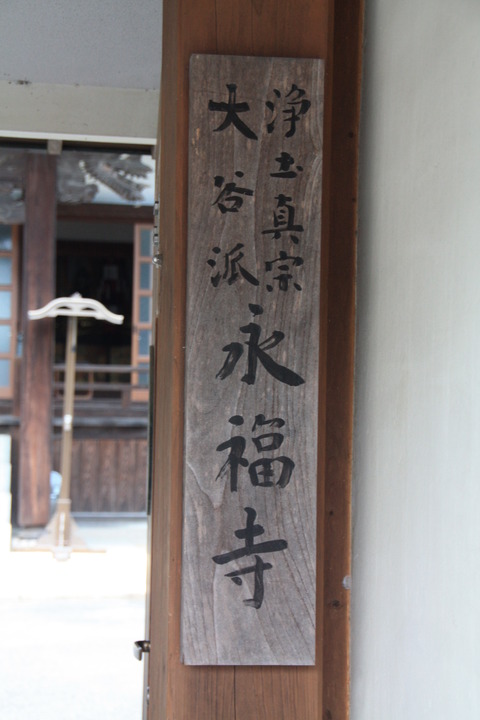 浄土真宗
大谷派
永福寺